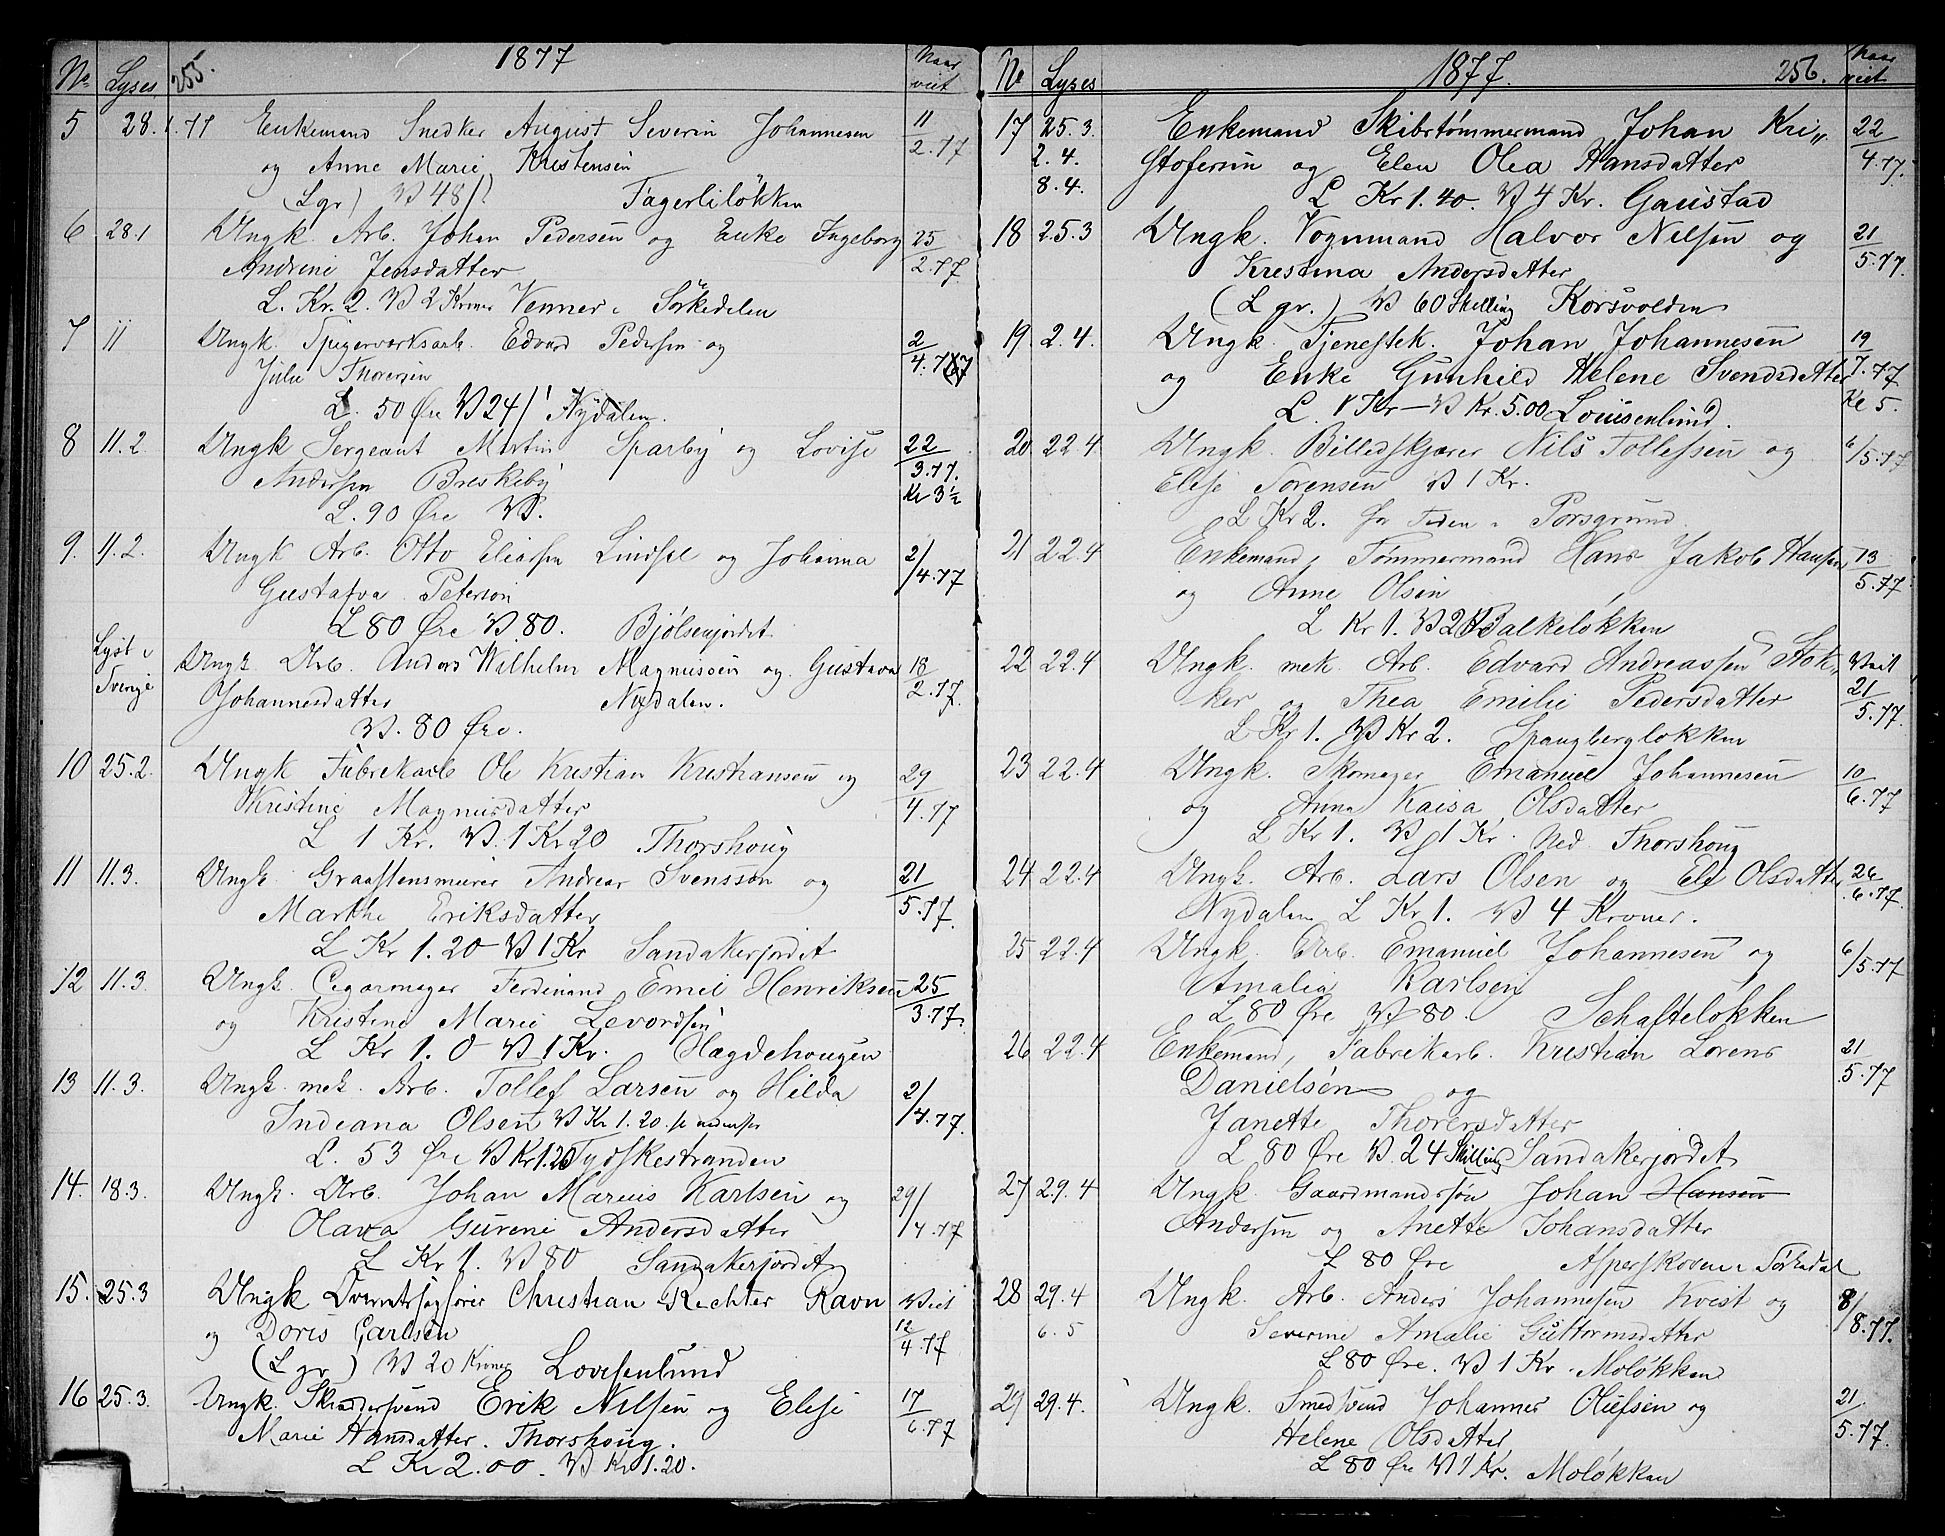 No Lyses 255. 1877 Naar viet
5 28.1.77 Enkemand Snedker August Severin Johannesen 11/2.77
og Anne Marie Kristensen
(L gr) V 48 /3 Fagerliløkken
6 28.1 Ungk. Arb. Johan Pedersen og Enke Ingeborg 25/2.77
Andrine Jensdatter
L. Kr. 2. V 2 Kroner Venner i Sørkedalen
7 11 Ungk. Spigerværksarb. Edvard Pedersen og 2/4.77
Julie Thoresen
L. 50 Øre V 24 /3 Nydalen.
8 11.2. Ungk Sergeant Martin Sparby og Lovise 22/3.77.
Andersen Breskeby Kl 3½
L. 90 Øre V.
9. 11.2. Ungk Arb. Otto Eliassen Lindsel og Johanna 2/4.77
Gustafva Peterson
L 80 Øre V 80. Bjølsenjordet
Lyst i Sverige Ungk. Arb. Anders Wilhelm Magnussen og Gustava 18/2.77.
Johannesdatter Nydalen.
V. 80 Øre.
10 25.2. Ungk Fabrikarb Ole Kristian Kristiansen og 29/4.77
Kristine Magnusdatter
L 1 Kr. V. 1 Kr 20 Thorshoug
11 11.3. Ungk. Graastensmurer Andreas Svensson og 21/5.77.
Marthe Eriksdatter
L Kr 1.20 V 1 Kr Sandakerjordet
12 11.3. Ungk. Cigarmager Ferdinand Emil Henriksen 25/3.77.
og Kristine Marie Levordsen
L Kr 1.0 V 1 Kr. Hægdehougen
13 11.3. Ungk. mek. Arb. Tollef Larsen og Hilda 2/4.77.
Indeana Olsen V Kr 1.20 se nedenfor
L. 53 Øre V Kr 1.20 Tydskestranden
14. 18.3. Ungk. Arb. Johan Marius Karlsen og 29/4.77
Olava Gurene Andersdatter
L Kr 1. V 80 Sandakerjordet
15. 25.3 Ungk Overretssagfører Christian Richter Ravn Viet
og Doris Carlsen 12/4.77
(L gr) V 20 Kroner Lovisenlund
16 25.3. Ungk. Skræddersvend Erik Nilsen og Elise 17/6.77
Marie Hansdatter. Thorshoug.
L Kr 2.00. V Kr 1.20.
No Lyses 1877. 256. Naar viet
17 25.3. Enkemand Skibstømmermand Johan Kri„ 22/4.77.
2.4. stofersen og Elen Olea Hansdatter
8.4. L Kr 1.40. V 4 Kr. Gaustad
18 25.3 Ungk. Vognmand Halvor Nilsen og 21/5.77.
Krestina Andersdatter
(L gr.) V 60 Skilling Korsvolden
19. 2.4. Ungk. Tjenestek. Johan Johannesen 19/7.77
og Enke Gunhild Helene Svendsdatter Kl 5.
L. 1 Kr V Kr. 5.00 Louisenlund.
20 22.4 Ungk. Billedskjærer Nils Tollefsen og 6/5.77
Elise Sørensen V 1 Kr.
L Kr 2. for Tiden i Porsgrund.
21 22.4 Enkemand, Tømmermand Hans Jakob Hansen 13/5.77
og Anne Olsen
L Kr 1. V 2 Kr Balkeløkken
22 22.4 Ungk. mek. Arb. Edvard Andreassen Stok„ Viet
ker og Thea Emilie Pedersdatter 21/5.77.
L Kr 1. V Kr 2. Spangbergløkken
23 22.4 Ungk. Skomager Emanuel Johannesen 10/6.77
og Anna Kaisa Olsdatter
L Kr 1. V 1 Kr. Ned. Thorshoug
24 22.4 Ungk. Arb. Lars Olsen og Eli Olsdatter 26/6.77.
Nydalen L Kr 1. V 4 Kroner.
25 22.4 Ungk. Arb. Emanuel Johannesen og 6/5.77
Amalia Karlsen
L 80 Øre V 80. Schafteløkken
26 22.4 Enkemand, Fabrikarb. Kristian Lorens 21/5.77
Danielsen og
Janette Thorersdatter
L 80 Øre V. 24 Skilling Sandakerjordet
27 29.4 Ungk. Gaardmandssøn Johan Hansen
Andersen og Anette Johansdatter
L 80 Øre Asperskoven i Sørkedal
28 29.4 Ungk. Arb. Anders Johannesen Kvist og 8/8.77.
6.5 Severine Amalie Guttormsdatter
L 80 Øre. V 1 Kr. Moløkken
29 29.4. Ungk. Smedsvend Johannes Olefsen og 21/5.77.
Helene Olsdatter
L 80 Øre V 1 Kr. Moløkken